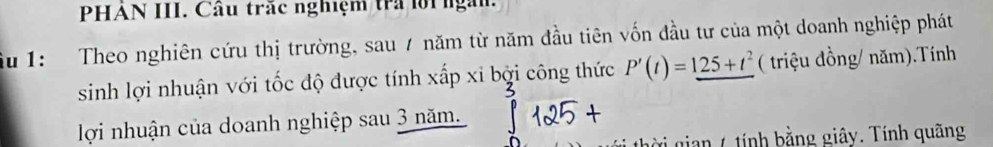 PHẦN III. Câu trắc nghiệm trả lời ngắn.
âu 1: Theo nghiên cứu thị trường, sau t năm từ năm đầu tiên vốn đầu tư của một doanh nghiệp phát
sinh lợi nhuận với tốc độ được tính xấp xỉ bởi công thức P'(t) = 125 + t² ( triệu đồng/ năm).Tính
lợi nhuận của doanh nghiệp sau 3 năm. ∫₀³ 125 +
thời gian t tính bằng giây. Tính quãng